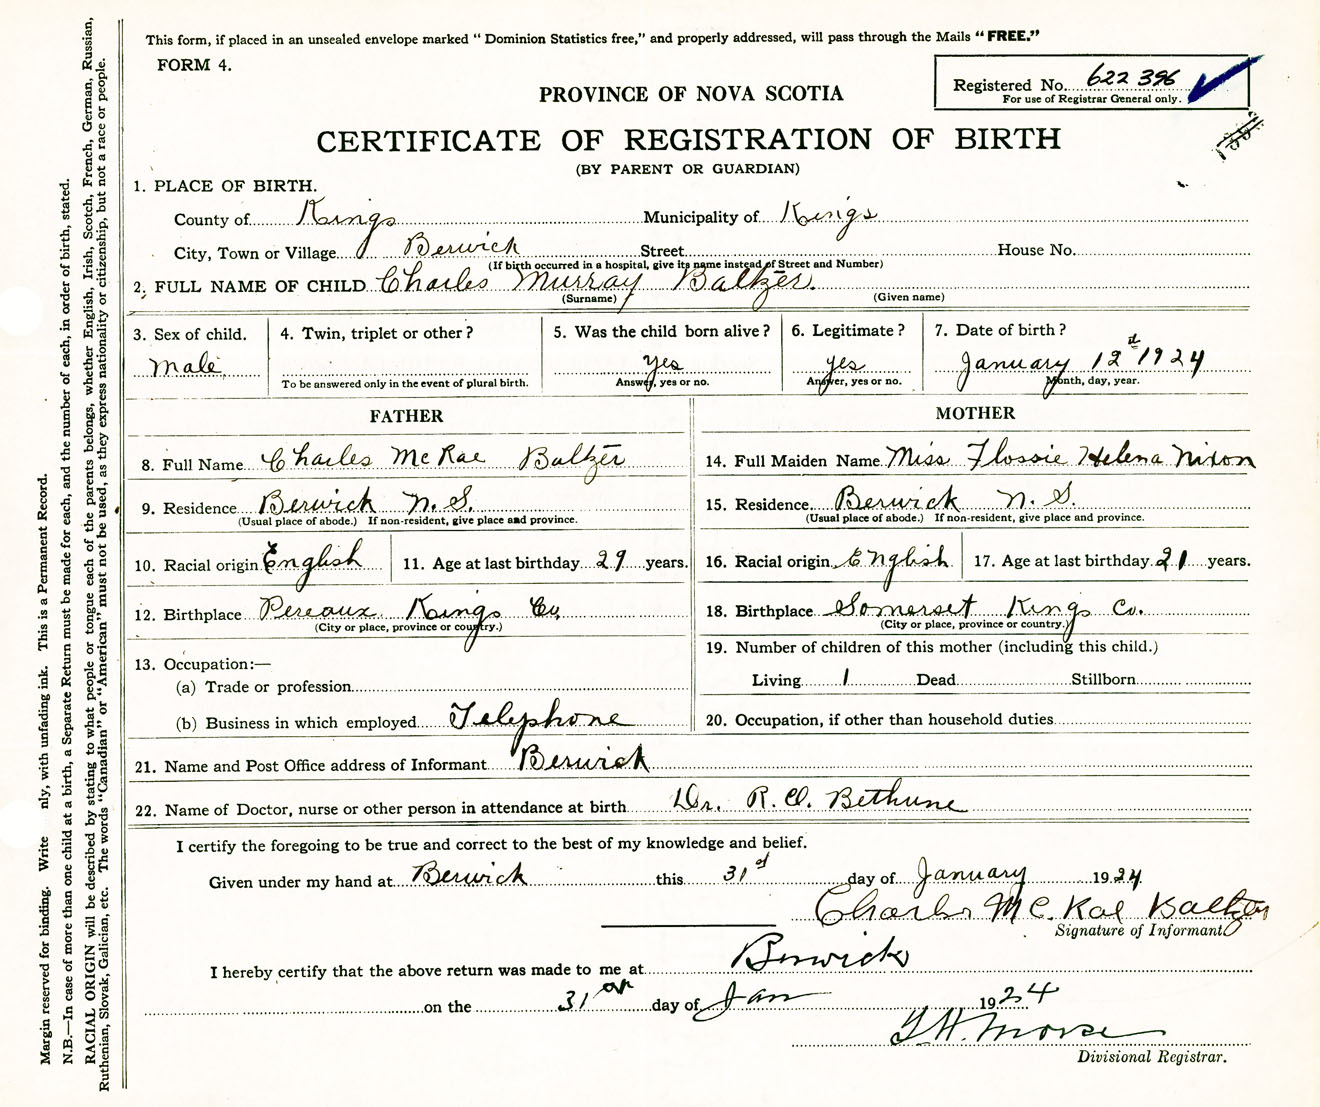 This form, if placed in an unsealed envelope marked "Dominion Statistics free," and properly addressed, will pass through the Mails "FREE."
FORM 4.
Registered No. 622 396
For use of Registrar General only.
PROVINCE OF NOVA SCOTIA
CERTIFICATE OF REGISTRATION OF BIRTH
(BY PARENT OR GUARDIAN)
1. PLACE OF BIRTH.
County of Kings Municipality of Kings
City, Town or Village Berwick Street House No.
(If birth occurred in a hospital, give its name instead of Street and Number)
2. FULL NAME OF CHILD Charles Murray Baltzer.
(Surname) (Given name)
3. Sex of child. 4. Twin, triplet or other? 5. Was the child born alive? 6. Legitimate? 7. Date of birth?
Male yes yes January 12th 1924
To be answered only in the event of plural birth. Answer, yes or no. Answer, yes or no. Month, day, year.
FATHER
8. Full Name Charles McRae Baltzer
9. Residence Berwick N.S.
(Usual place of abode.) If non-resident, give place and province.
10. Racial origin English 11. Age at last birthday 29 years.
12. Birthplace Pereaux Kings Co.
(City or place, province or country.)
13. Occupation:—
(a) Trade or profession
(b) Business in which employed Telephone
MOTHER
14. Full Maiden Name Miss Flossie Helena Nixon
15. Residence Berwick N.S.
(Usual place of abode.) If non-resident, give place and province.
16. Racial origin English 17. Age at last birthday 21 years.
18. Birthplace Somerset Kings Co.
(City or place, province or country.)
19. Number of children of this mother (including this child.)
Living 1 Dead Stillborn
20. Occupation, if other than household duties
21. Name and Post Office address of Informant Berwick
22. Name of Doctor, nurse or other person in attendance at birth Dr. R. O. Bethune
I certify the foregoing to be true and correct to the best of my knowledge and belief.
Given under my hand at Berwick this 31st day of January 1924
Charles McRae Baltzer
Signature of Informant
I hereby certify that the above return was made to me at Berwick
on the 31 day of Jan 1924
Morse
Divisional Registrar.
Margin reserved for binding. Write nly, with unfading ink. This is a Permanent Record.
N.B.—In case of more than one child at a birth, a Separate Return must be made for each, and the number of each, in order of birth, stated.
RACIAL ORIGIN will be described by stating to what people or tongue each of the parents belongs, whether English, Irish, Scotch, French, German, Russian,
Ruthenian, Slovak, Galician, etc. The words "Canadian" or "American" must not be used, as they express nationality or citizenship, but not a race or people.